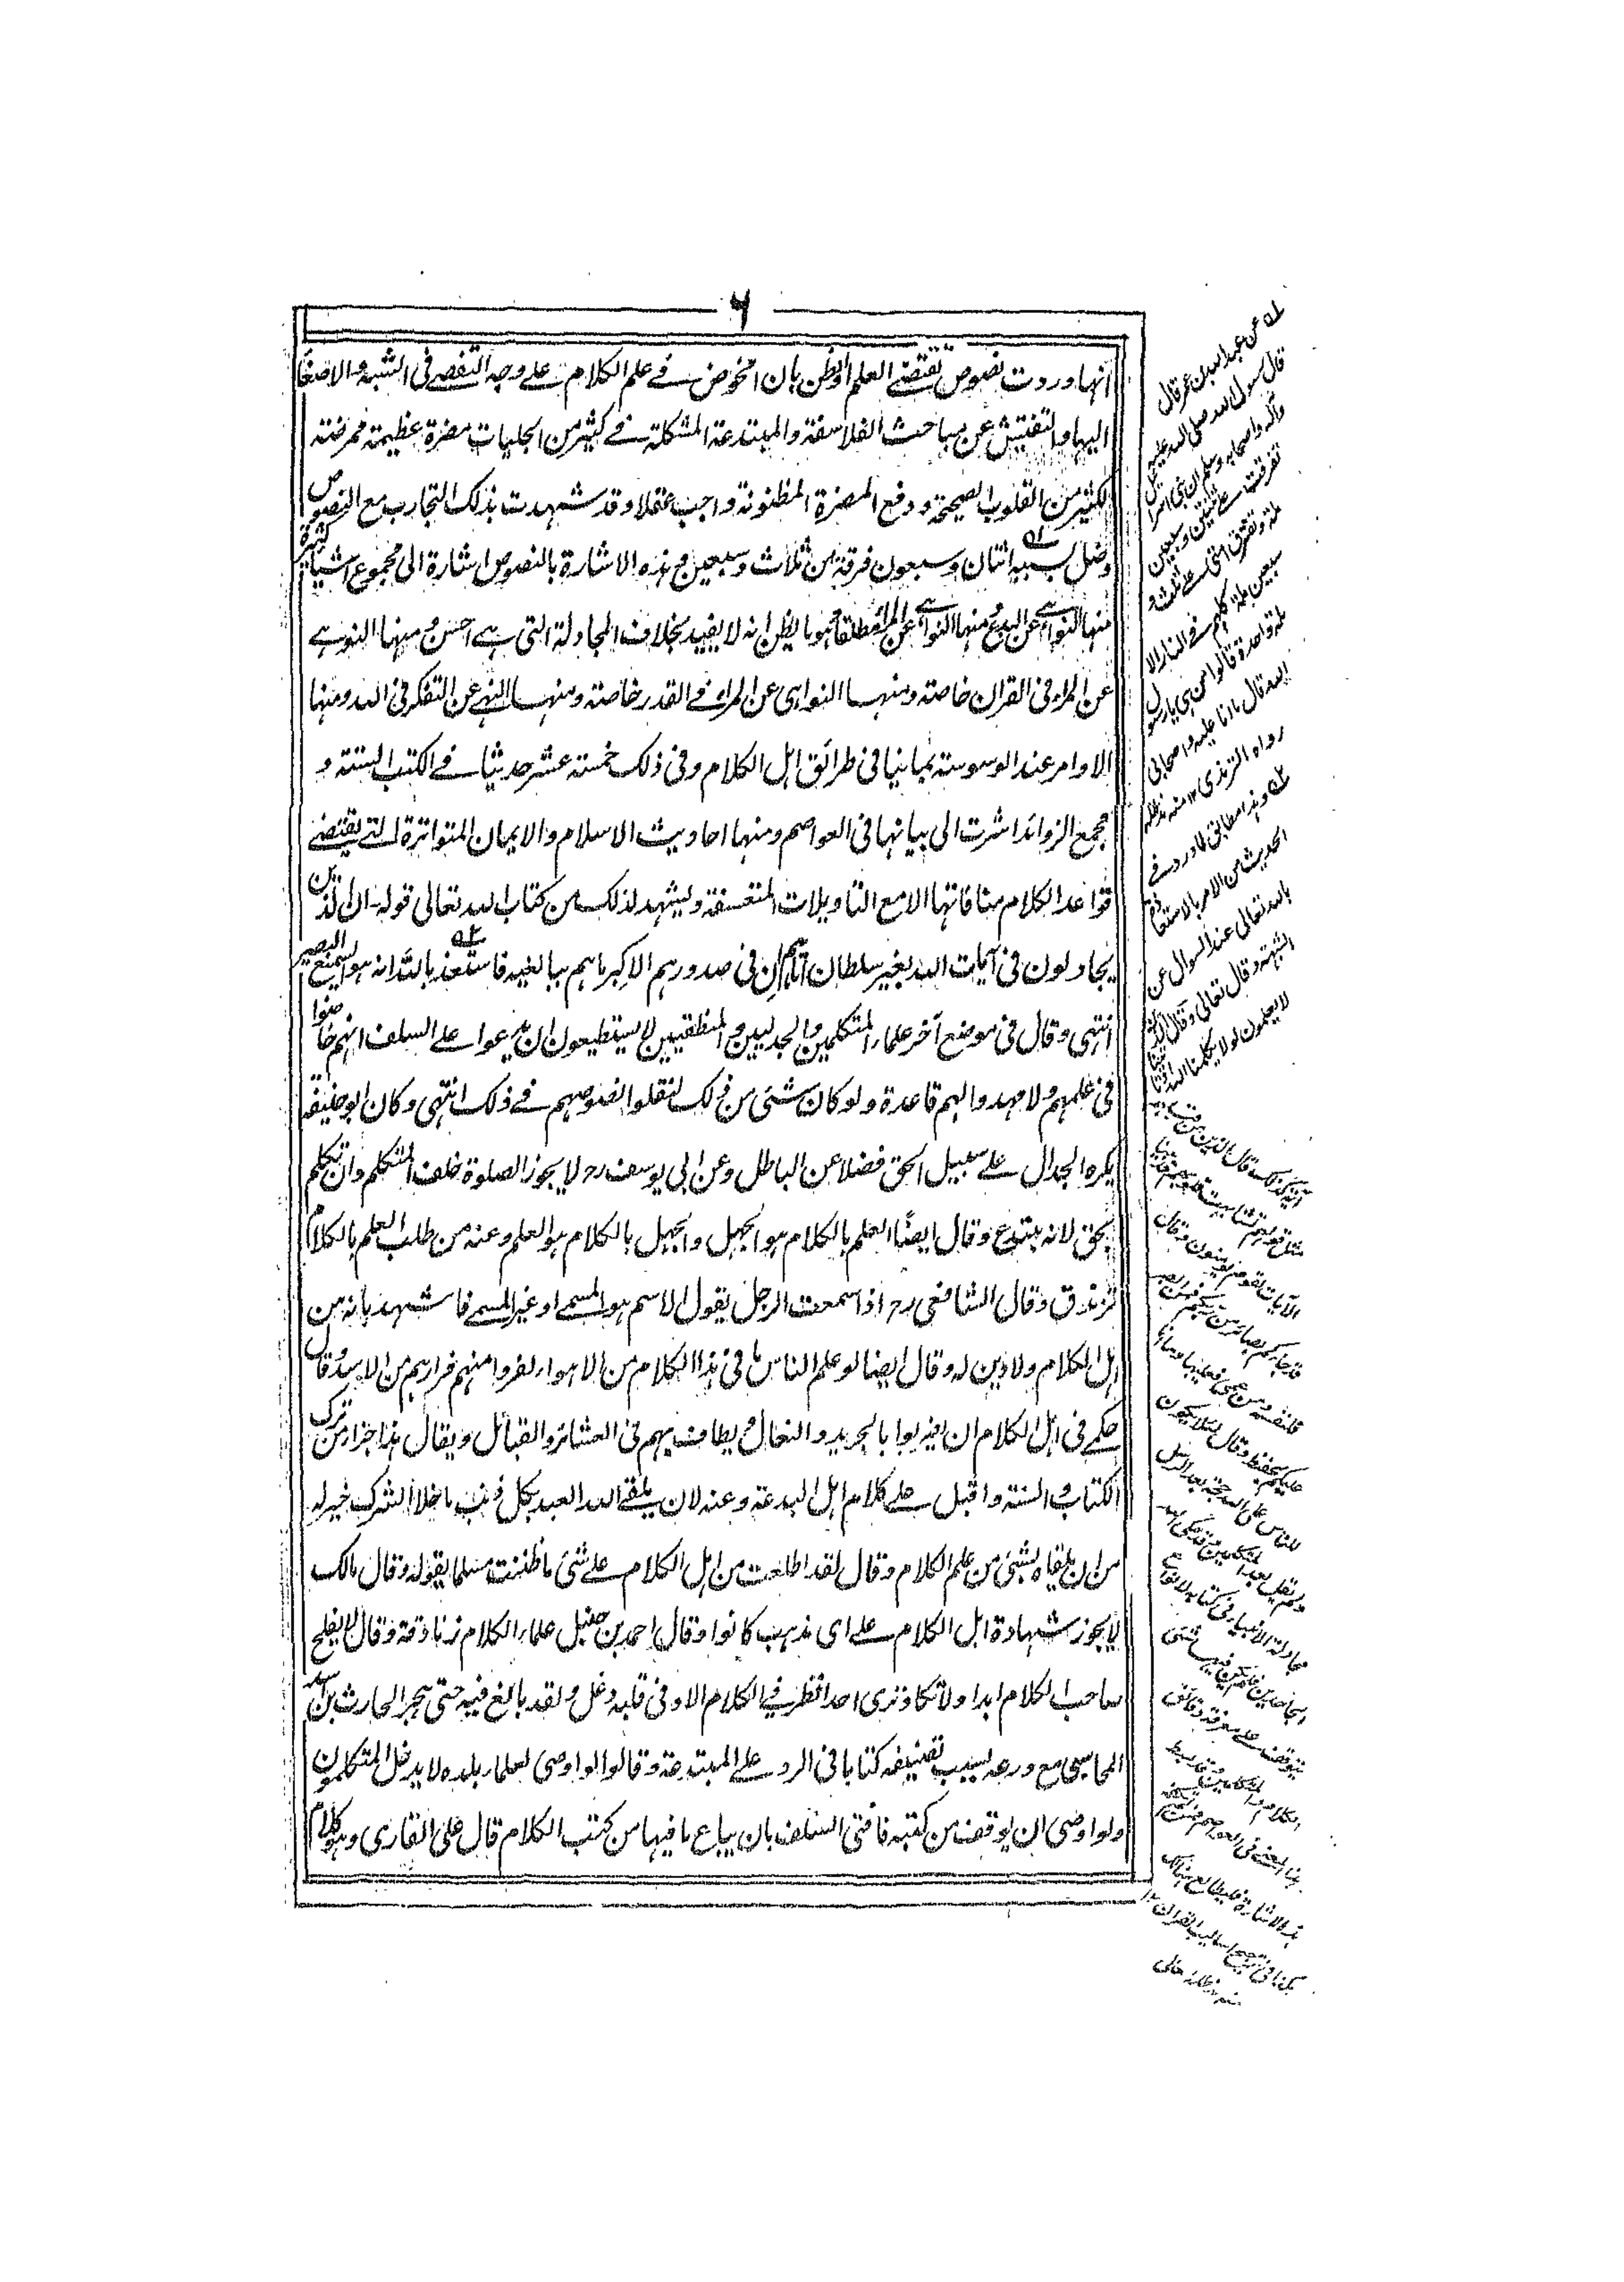 ٦
انها وردت نصوص تقتضے العلم او الظن بان الخوض فے علم الکلام علے وجه التقصے فی الشبه والاصغا
الیها والتفتیش عن مباحث الفلاسفة والمبتدعة المشکلة فے کثیر من الجلیات مضرة عظیمة ممرضة
لکثیر من القلوب الصحیحة ودفع المضرة المظنونة واجب عقلا وقد شهدت بذلک التجارب مع النصوص
وضل بسببه اثنتان وسبعون فرقة من ثلاث وسبعین وهذه الاشارة بالنصوص اشارة الی مجموع اشیاء کثیرة
منها النواهے عن البدع ومنها النواهے عن المراء مطلقا وهو ما یظن انه لا یفید بخلاف المجادلة التی هے احسن ومنها النوهے
عن المراء فی القران خاصة ومنها النواهی عن المراء فے القدر خاصة ومنها النهے عن التفکر فی الله ومنها
الاوامر عند الوسوسة بما ینافی طرائق اهل الکلام وفی ذلک خمسة عشر حدیثا فے الکتب الستة و
مجمع الزوائد اشرت الی بیانها فی العواصم ومنها احادیث الاسلام والایمان المتواترة التے یقتضے
قواعد الکلام منافاتها الا مع التاویلات المتعسفة ویشهد لذلک من کتاب الله تعالی قوله ان الذین
یجادلون فی آیات الله بغیر سلطان اتاهم ان فی صدورهم الا کبر ما هم ببالغیه فاستعذ بالله انه هو السمیع البصیر
انتهی وقال فی موضع آخر علماء المتکلمین والجدلیین والمنطقیین لا یستطیعون ان یدعوا علے السلف انهم خاضوا
فی علمهم ولا مهدوا لهم قاعدة ولو کان شئی من ذلک لنقلوا نصوصهم فے ذلک انتهی وکان ابو حنیفة
یکره الجدال علے سبیل الحق فضلا عن الباطل وعن ابی یوسف رح لا یجوز الصلوة خلف المتکلم وان تکلم
بحق لانه مبتدع وقال ایضًا العلم بالکلام هو الجهل والجهل بالکلام هو العلم وعنه من طلب العلم بالکلام
تزندق وقال الشافعی رح اذا سمعت الرجل یقول الاسم هو المسمے او غیر المسمے فاشهد بانه من
اهل الکلام ولا دین له وقال ایضا لو علم الناس ما فی هذا الکلام من الاهواء لفروا منهم فرارهم من الاسد وقال
حکمے فی اهل الکلام ان یضربوا بالجرید والنعال ویطاف بهم فی العشائر والقبائل ویقال هذا جزاء من ترک
الکتاب والسنة واقبل علے کلام اهل البدعة وعنه لان یلقے الله العبد بکل ذنب ما خلا الشرک خیر له
من ان یلقاه بشئ من علم الکلام وقال لقد اطلعت من اهل الکلام علے شئ ما ظننت مسلما یقوله وقال مالک
لا یجوز شهادة اهل الکلام علے ای مذهب کانوا وقال احمد بن حنبل علماء الکلام زنادقة وقال لا یفلح
صاحب الکلام ابدا ولا تکاد تری احدا نظر فی الکلام الا وفی قلبه دغل ولقد بالغ فیه حتی هجر الحارث بن اسد
المحاسبی مع ورعه بسبب تصنیفه کتابا فی الرد علے المبتدعة وقالوا لو اوصی لعلماء بلده لا یدخل المتکلمون
ولو اوصی ان یوقف من کتبه فافتی السلف بان یباع ما فیها من کتب الکلام قال علی القاری وهو کلام
له عن عبد الله بن عمر قال
قال رسول الله صلی الله علیه
وآله واصحابه وسلم ان بنی اسرائیل
تفرقت علے ثنتین وسبعین
ملة وتفترق امتی علے ثلث و
سبعین ملة کلهم فے النار الا
ملة واحدة قالوا من هی یا رسول
الله قال ما انا علیه واصحابی
رواه الترمذی ١٢ منه مدظله
له وهذا مطابق لما ورد فے
الحدیث من الامر بالاستعاذة
بالله تعالی عند السوال عن
الشبهة وقال تعالی وقال الذین
لا یعلمون لولا یکلمنا الله او تاتینا
آیة کذلک قال الذین من قبلهم
مثل قولهم تشابهت قلوبهم قد بینا
الآیات لقوم یوقنون وقال
قد جاءکم بصائر من ربکم فمن ابصر
فلنفسه ومن عمی فعلیها وما انا
علیکم بحفیظ وقال لئلا یکون
للناس علی الله حجة بعد الرسل